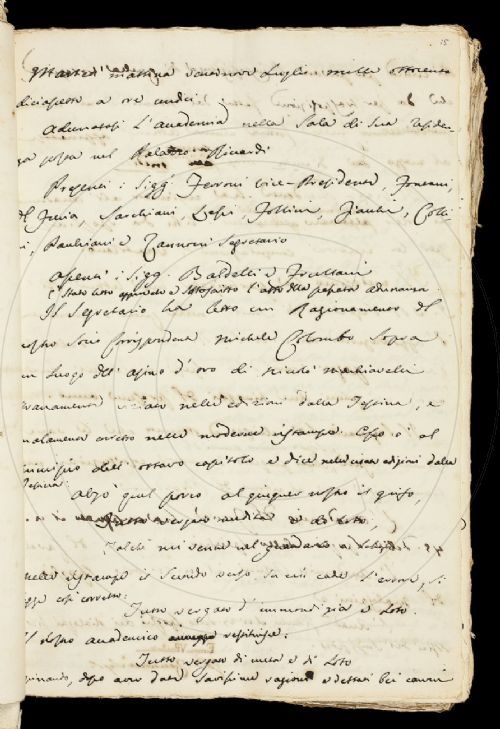 15
Martedì mattina ventinove Luglio mille ottocento
diciasette a ore undici
Adunatasi l'Accademia nella Sala di Sua residen-
za posta nel Palazzo Riccardi
Presenti i Sigg. Ferroni Vice-Presidente, Fontani,
del Furia, Sarchiani, Lessi, Follini, Zanoni Segretario
Assenti i Sigg. Baldelli e Frullani
È stato letto approvato e sottoscritto l'atto della passata adunanza.
Il Segretario ha letto un Ragionamento del
nostro Socio Corrispondente Michele Colombo sopra
un luogo dell'asino d'oro di Niccolò Machiavelli
stranamente viziato nelle edizioni della Testina, e
malamente corretto nelle moderne ristampe. Esso è al
principio dell'ottavo capitolo e dice nelle edizioni della
Testina:
Alzò quel porco al giugner nostro il grifo,
vergato di loto;
Talchè mi venne nel guardarlo a schifo.
Nelle ristampe il secondo verso, in cui cade l'errore, si
legge così corretto:
Tutto vergato d'immondizia e loto.
Il dotto accademico restituisce:
Tutto vergato di merda e di loto
dopo aver date savissime ragioni e dettati bei canoni